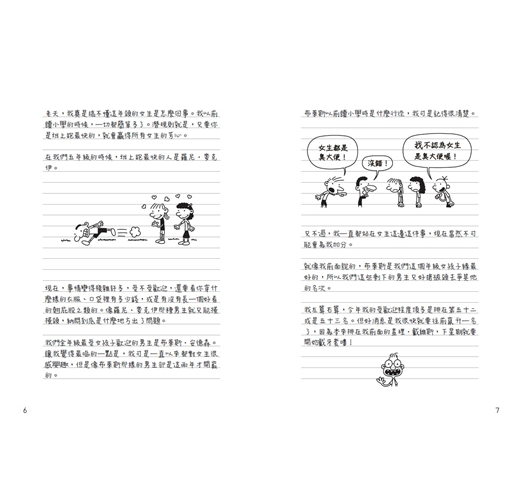 老天,我真是搞不懂這年頭的女生是怎麼回事。我以前
讀小學的時候,一切都簡單多了。遊戲規則就是,只要你
是班上跑最快的,就會贏得所有女生的芳心。
在我們五年級的時候,班上跑最快的人是羅尼.麥克
伊。
現在,事情變得複雜許多。受不受歡迎,還要看你穿什
麼樣的衣服、口袋裡有多少錢,或是有沒有長一個好看
的翹屁股之類的。像羅尼.麥克伊那種男生就只能搔
搔頭,納悶到底是什麼地方出了問題。
我們全年級最受女孩子歡迎的男生是布萊斯.安德森。
讓我覺得最嘔的一點是,我可是一直以來都對女生很
感興趣,但是像布萊斯那樣的男生卻是這兩年才開竅
的。
6
布萊斯以前讀小學時是什麼行徑,我可是記得很清楚。
女生都是
臭大便!
沒錯!
我不認為女生
是臭大便喔!
只不過,我一直都站在女生這邊這件事,現在當然不可
能會為我加分。
就像我前面說的,布萊斯是我們這個年級女孩子緣最
好的,所以我們這些剩下的男生只好搶破頭去爭其他
的名次。
我左算右算,今年我的受歡迎程度頂多是排在第五十二
或是五十三名。但好消息是我很快就要往前晉升一名
了,因為本來排在我前面的查理.戴維斯,下星期就要
開始戴牙套嘍!
7